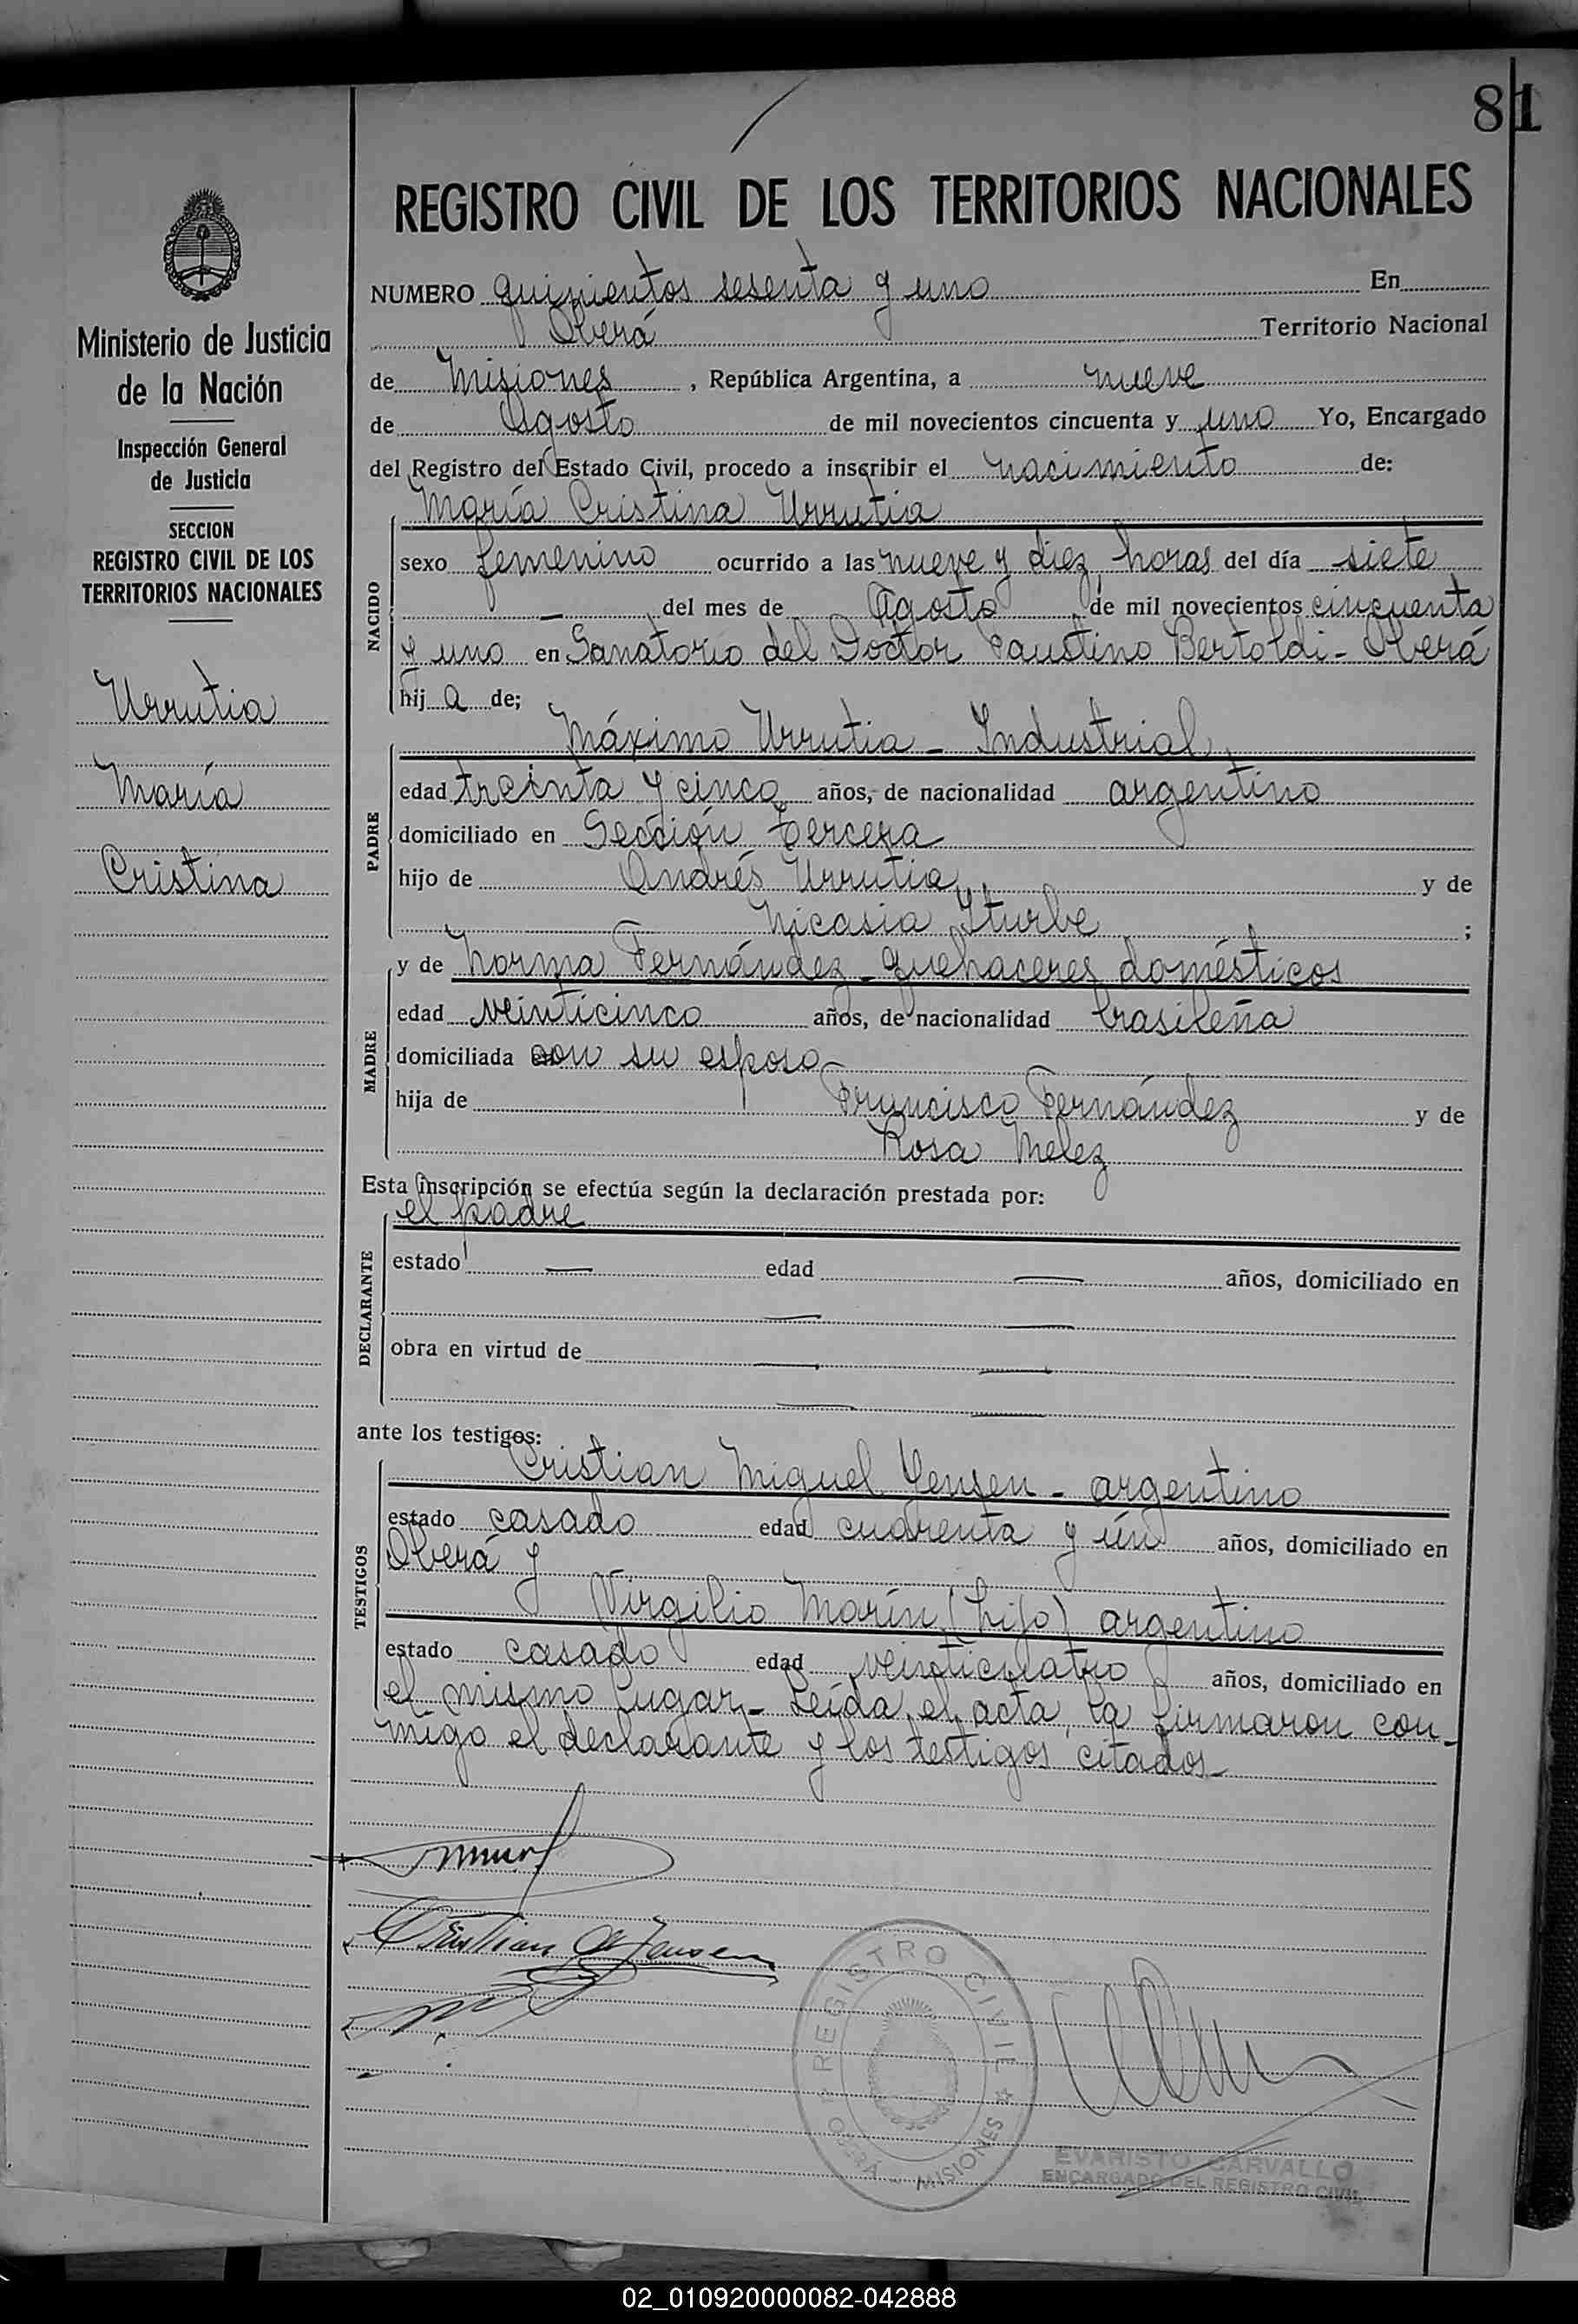 81
REGISTRO CIVIL DE LOS TERRITORIOS NACIONALES
Ministerio de Justicia
de la Nación
Inspección General
de Justicia
SECCION
REGISTRO CIVIL DE LOS
TERRITORIOS NACIONALES
Urrutia
María
Cristina
NUMERO quinientos sesenta y uno En
Oberá Territorio Nacional
de Misiones, República Argentina, a nueve
de Agosto de mil novecientos cincuenta y uno Yo, Encargado
del Registro del Estado Civil, procedo a inscribir el nacimiento de:
NACIDO
María Cristina Urrutia
sexo femenino ocurrido a las nueve y diez horas del día siete
— del mes de Agosto de mil novecientos cincuenta
y uno en Sanatorio del Doctor Faustino Bertoldi - Oberá
hij a de;
PADRE
Máximo Urrutia - Industrial
edad treinta y cinco años, de nacionalidad argentino
domiciliado en Sección tercera
hijo de Andrés Urrutia y de
Nicasia Yturbe ;
MADRE
y de Norma Fernández - quehaceres domésticos
edad veinticinco años, de nacionalidad brasileña
domiciliada con su esposo
hija de Francisco Fernández y de
Rosa Melez
Esta inscripción se efectúa según la declaración prestada por:
DECLARANTE
el padre
estado — edad — años, domiciliado en
— —
obra en virtud de — —
— —
ante los testigos:
TESTIGOS
Cristian Miguel Yensen - argentino
estado casado edad cuarenta y ún años, domiciliado en
Oberá y
Virgilio Marín (hijo) argentino
estado casado edad veinticuatro años, domiciliado en
el mismo lugar - Leída el acta, la firmaron con-
migo el declarante y los testigos citados -
Cristian M Jensen
REGISTRO CIVIL
OBERÁ - MISIONES
EVARISTO CARVALLO
ENCARGADO DEL REGISTRO CIVIL
02_010920000082-042888